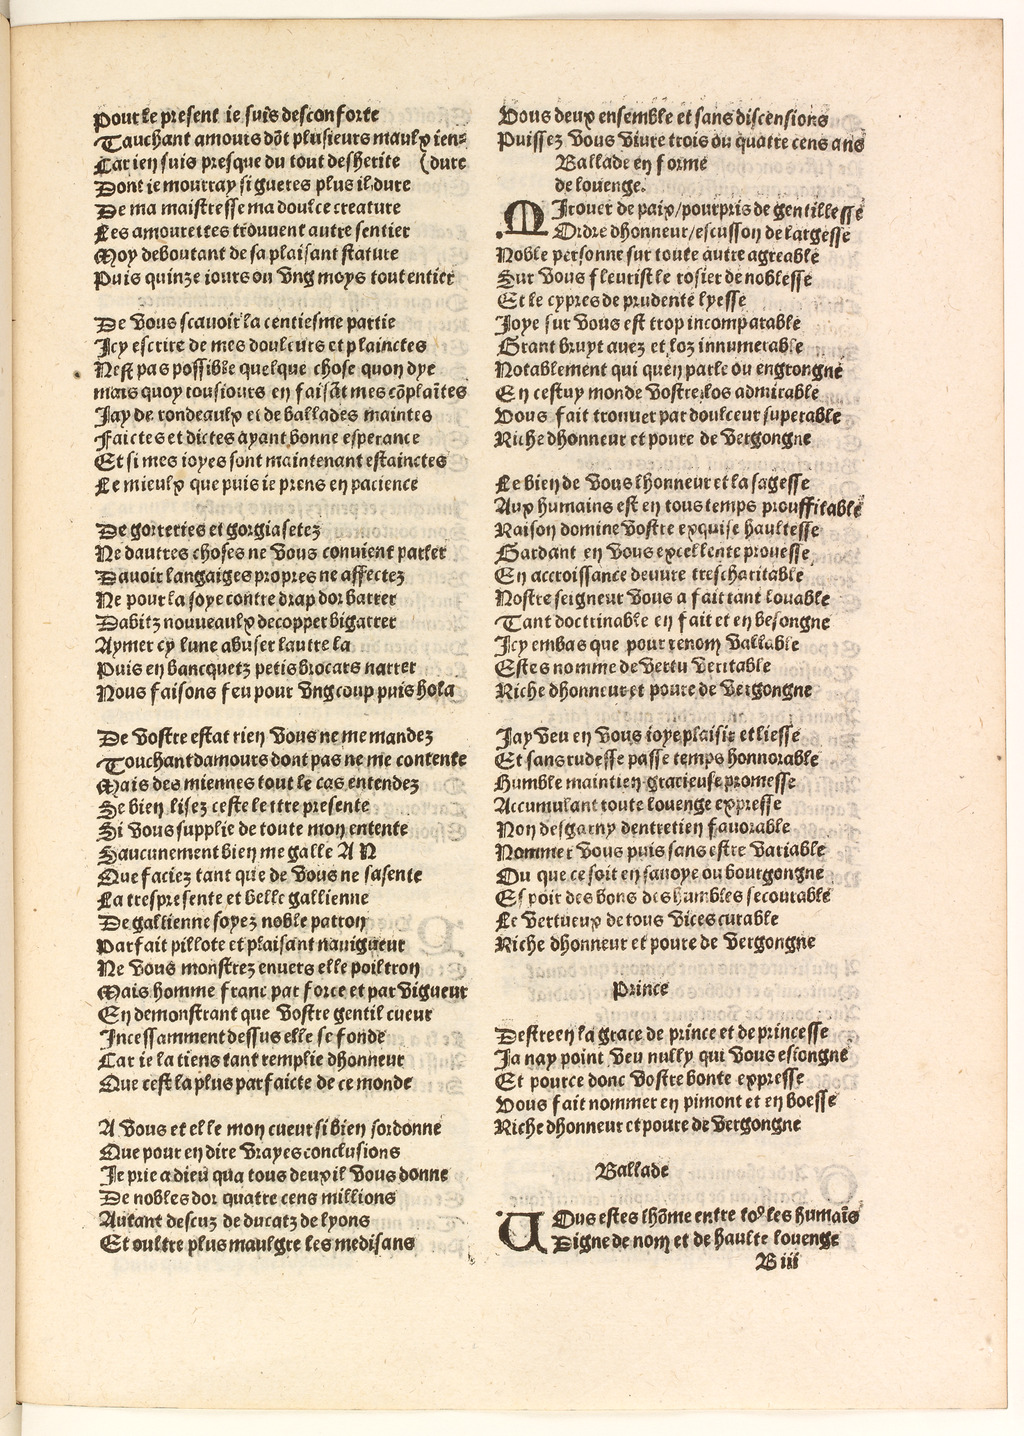 Pour le present ie suis desconforte
Touchant amours dōt plusieurs maulx ien-
Car ien suis presque du tout desherite (dure
Dont ie mourray si gueres plus il dure
De ma maistresse ma doulce creature
Les amourettes trouuent autre sentier
Moy deboutant de sa plaisant stature
Puis quinze iours ou vng moys tout entier
De vous scauoir la centiesme partie
Icy escrire de mes douleurs et plainctes
Nest pas possible quelque chose quon dye
mais quoy tousiours en faisāt mes cōplaītes
Jay de rondeaulx et de ballades maintes
Faictes et dictes ayant bonne esperance
Et si mes ioyes sont maintenant estainctes
Le mieulx que puis ie prens en pacience
De gorreries et gorgiasetez
Ne dautres choses ne vous conuient parler
Dauoir langaiges propres ne affectez
Ne pour la soye contre drap dor barrer
Dabitz nouueaulx decopper bigarrer
Aymer cy lune abuser lautre la
Puis en bancquetz petis brocars narrer
Nous faisons feu pour vng coup puis hola
De vostre estat rien vous ne me mandez
Touchant damours dont pas ne me contente
Mais des miennes tout le cas entendez
Se bien lisez ceste lettre presente
Si vous supplie de toute mon entente
Saucunement bien me galle A N
Que faciez tant que de vous ne sasente
La trespresente et belle gallienne
De gallienne soyez noble patron
Parfait pillote et plaisant nauigueur
Ne vous monstrez enuers elle poiltron
Mais homme franc par force et par vigueur
En demonstrant que vostre gentil cueur
Incessamment dessus elle se fonde
Car ie la tiens tant remplie dhonneur
Que cest la plus parfaicte de ce monde
A vous et elle mon cueur si bien sordonne
Que pour en dire vrayes conclusions
Je prie a dieu qua tous deux il vous donne
De nobles dor quatre cens millions
Autant descuz de ducatz de lyons
Et oultre plus maulgre les medisans
Vous deux ensemble et sans discensions
Puissez vous viure trois ou quatre cens ans
Ballade en forme
de louenge.
MIrouer de paix/pourpris de gentillesse
Ordre dhonneur/escusson de largesse
Noble personne sur toute autre agreable
Sur vous fleurist le rosier de noblesse
Et le cypres de prudente lyesse
Joye sur vous est trop incomparable
Grant bruyt auez et loz innumerable
Notablement qui quen parle ou engrongne
En cestuy monde vostre los admirable
Vous fait trouuer par doulceur superable
Riche dhonneur et poure de vergongne
Le bien de vous lhonneur et la sagesse
Aux humains est en tous temps prouffitable
Raison domine vostre exquise haultesse
Gardant en vous excellente prouesse
En accroissance deuure trescharitable
Nostre seigneur vous a fait tant louable
Tant doctrinable en fait et en besongne
Icy embas que pour renom vallable
Estes nomme de vertu veritable
Riche dhonneur et poure de vergongne
Jay veu en vous ioye plaisir et liesse
Et sans rudesse passe temps honnorable
Humble maintien gracieuse promesse
Accumulant toute louenge expresse
Non desgarny dentretien fauorable
Nommer vous puis sans estre variable
Ou que ce soit en sauoye ou bourgongne
Espoir des bons des humbles secourable
Le vertueux de tous vices curable
Riche dhonneur et poure de vergongne
Prince
Destre en la grace de prince et de princesse
Ja nay point veu nully qui vous eslongne
Et pource donc vostre bonte expresse
Vous fait nommer en pimont et en boesse
Riche dhonneur et poure de vergongne
Ballade
VOus estes lhōme entre toꝰ les humaīs
Digne de nom et de haulte louenge
B iii